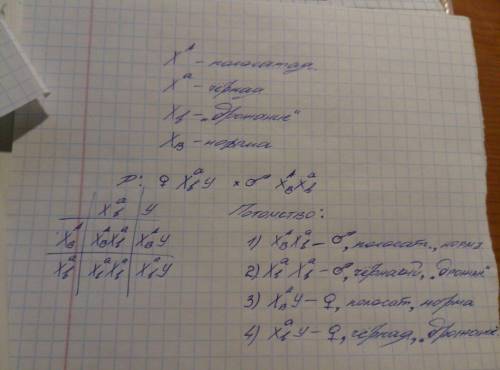 X^A – полосатая
X^a – чёрная
X_b – „дрожание"
X_B – норма
P: ♀ X_b^a У × ♂ X_B^A X_b^a
X_b^a У
X_B^A X_B^A X_b^a X_B^A У
X_b^a X_b^a X_b^a X_b^a У
Потомство:
1) X_B^A X_b^a – ♂, полосат., норма
2) X_b^a X_b^a – ♂, чёрный, „дрожание"
3) X_B^A У – ♀, полосат., норма
4) X_b^a У – ♀, чёрная, „дрожание"